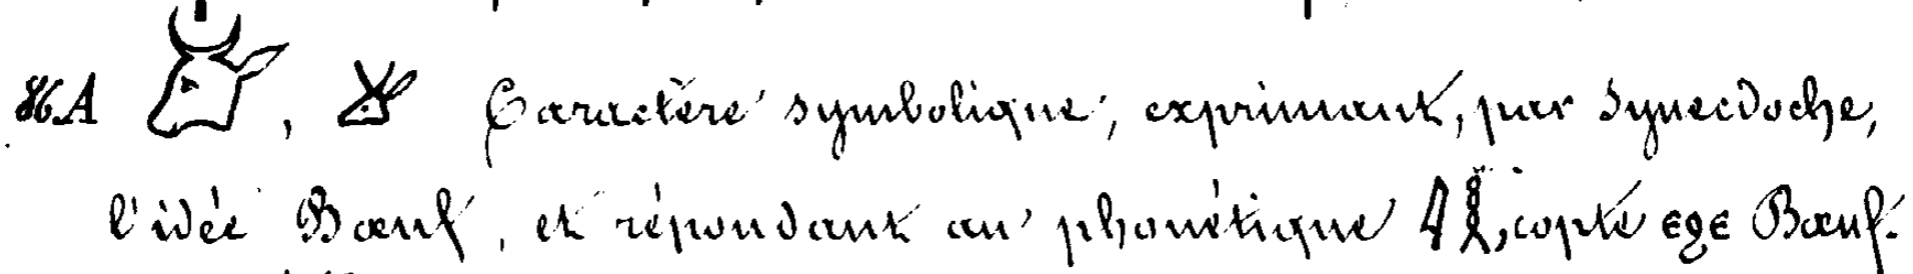 𓃾, Caractère symbolique, exprimant, par Synecdoche,
l'idée Bœuf, et répondant au phonétique 𓇋𓎛, copte ⲉϩⲉ Bœuf.